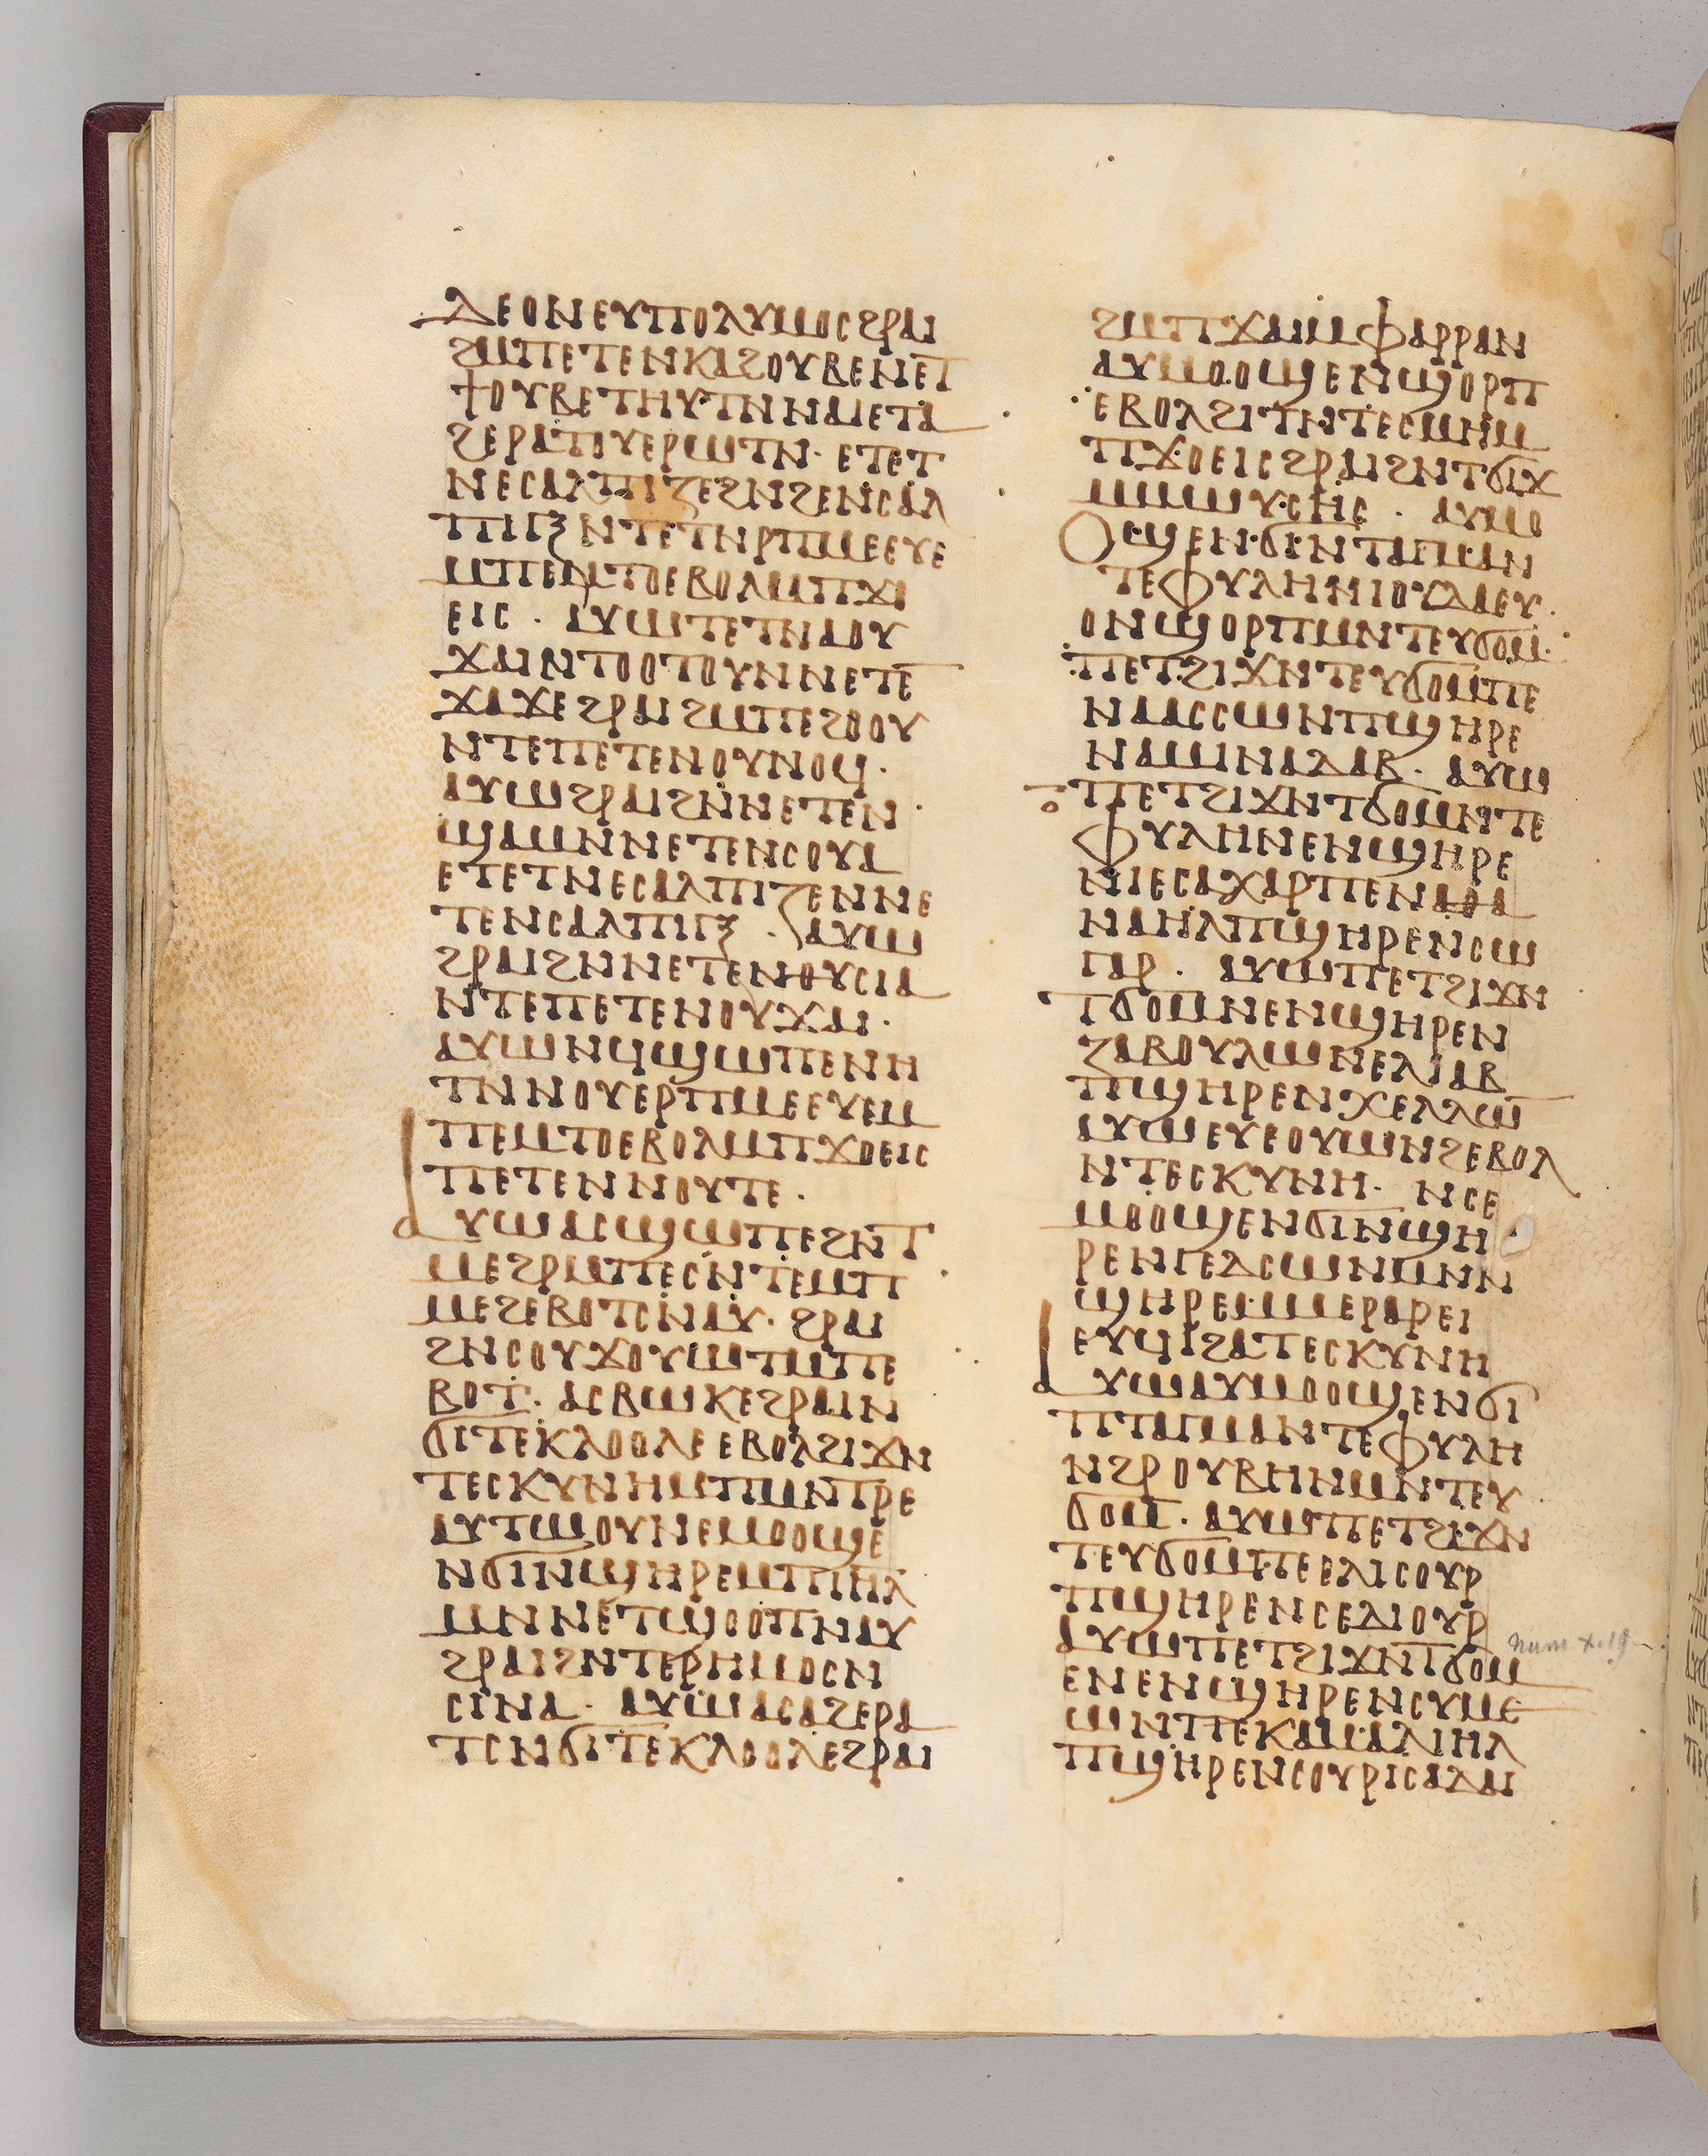 ⲇⲉⲟⲛⲉⲩⲡⲟⲗⲩⲙⲟⲥϩⲣⲁⲓ
ϩⲙⲡⲉⲧⲉⲛⲕⲁϩⲟⲩⲃⲉⲛⲉⲧ
ϯⲟⲩⲃⲉⲧⲏⲩⲧⲛⲛⲁⲓⲉⲧⲁ
ϩⲉⲣⲁⲧⲟⲩⲉⲣⲱⲧⲛ· ⲉⲧⲉⲧ
ⲛⲉⲥⲁⲗⲡⲓⲍⲉϩⲛϩⲉⲛⲥⲁⲗ
ⲡⲓⲅⲝⲛⲧⲉⲧⲛⲣⲡⲙⲉⲉⲩⲉ
ⲙⲡⲉⲙⲧⲟⲉⲃⲟⲗⲙⲡϫⲟ
ⲉⲓⲥ · ⲁⲩⲱⲧⲉⲧⲛⲁⲟⲩ
ϫⲁⲓⲛⲧⲟⲟⲧⲟⲩⲛⲛⲉⲧⲉ
ϫⲁϫⲉϩⲣⲁⲓϩⲙⲡⲉϩⲟⲟⲩ
ⲛⲧⲉⲡⲉⲧⲉⲛⲟⲩⲛⲟϥ·
ⲁⲩⲱϩⲣⲁⲓϩⲛⲛⲉⲧⲉⲛ
ϣⲁⲙⲛⲛⲉⲧⲉⲛⲥⲟⲩⲁ
ⲉⲧⲉⲧⲛⲉⲥⲁⲗⲡⲓⲍⲉⲛⲛⲉ
ⲧⲉⲛⲥⲁⲗⲡⲓⲅⲝ · ⲁⲩⲱ
ϩⲣⲁⲓϩⲛⲛⲉⲧⲉⲛⲑⲩⲥⲓⲁ
ⲛⲧⲉⲡⲉⲧⲉⲛⲟⲩϫⲁⲓ·
ⲁⲩⲱⲛϥϣⲱⲡⲉⲛⲏ
ⲧⲛⲛⲟⲩⲉⲣⲡⲙⲉⲉⲩⲉⲙ
ⲡⲉⲙⲧⲟⲉⲃⲟⲗⲙⲡϫⲟⲉⲓⲥ
ⲡⲉⲧⲉⲛⲛⲟⲩⲧⲉ·
ⲁⲩⲱⲁⲥϣⲱⲡⲉϩⲛⲧ
ⲙⲉϩⲣⲙⲡⲉⲥⲛⲧⲉⲙⲡ
ⲙⲉϩⲉⲃⲟⲧⲥⲛⲁⲩ· ϩⲣⲁⲓ
ϩⲛⲥⲟⲩϫⲟⲩⲱⲧⲙⲡⲉ
ⲃⲟⲧ· ⲁⲥⲃⲱⲕⲉϩⲣⲁⲓⲛ
ϭⲓⲧⲉⲕⲗⲟⲟⲗⲉⲉⲃⲟⲗϩⲓϫⲛ
ⲧⲉⲥⲕⲩⲛⲏⲙⲡⲙⲛⲧⲣⲉ
ⲁⲩⲧⲱⲟⲩⲛⲉⲙⲟⲟϣⲉ
ⲛϭⲓⲛϣⲏⲣⲉⲙⲡⲓⲏⲗ
ⲙⲛⲛⲉⲧϣⲟⲟⲡⲛⲁⲩ
ϩⲣⲁⲓϩⲛⲧⲉⲣⲏⲙⲟⲥⲛ
ⲥⲓⲛⲁ· ⲁⲩⲱⲁⲥⲁϩⲉⲣⲁ
ⲧⲥⲛϭⲓⲧⲉⲕⲗⲟⲟⲗⲉϩⲣⲁⲓ
ϩⲙⲡϫⲁⲓⲙⲫⲁⲣⲣⲁⲛ
ⲁⲩⲙⲟⲟϣⲉⲛϣⲟⲣⲡ
ⲉⲃⲟⲗϩⲓⲧⲛⲧⲉⲥⲙⲏⲙ
ⲡϫⲟⲉⲓⲥϩⲣⲁⲓϩⲛⲧϭⲓϫ
ⲙⲙⲱⲩⲥⲏⲥ · ⲁⲩⲙⲟ
ⲟϣⲉⲛϭⲓⲛⲧⲁⲅⲙⲁⲛ
ⲧⲉⲫⲩⲗⲏⲛⲓⲟⲩⲇⲁⲉⲩ·
ⲟⲛϣⲟⲣⲡⲙⲛⲧⲉⲩϭⲟⲙ·
ⲡⲉⲧϩⲓϫⲛⲧⲉⲩϭⲟⲙⲡⲉ
ⲛⲁⲁⲥⲥⲱⲛⲡϣⲏⲣⲉ
ⲛⲁⲙⲓⲛⲁⲇⲁⲃ· ⲁⲩⲱ
ⲡⲉⲧϩⲓϫⲛⲧϭⲟⲙⲛⲧⲉ
ⲫⲩⲗⲏⲛⲉⲛϣⲏⲣⲉ
ⲛⲓⲉⲥⲁⲭⲁⲣⲡⲉⲛⲁⲑⲁ
ⲛⲁⲏⲗⲡϣⲏⲣⲉⲛⲥⲱ
ⲅⲁⲣ· ⲁⲩⲱⲡⲉⲧϩⲓϫⲛ
ⲧϭⲟⲙⲛⲉⲛϣⲏⲣⲉⲛ
ⲍⲁⲃⲟⲩⲗⲱⲛⲉⲗⲓⲁⲃ
ⲡϣⲏⲣⲉⲛⲭⲉⲗⲗⲱ
ⲁⲩⲱⲉⲩⲉⲟⲩⲱⲛϩⲉⲃⲟⲗ
ⲛⲧⲉⲥⲕⲩⲛⲏ· ⲛⲥⲉ
ⲙⲟⲟϣⲉⲛϭⲓⲛϣⲏ
ⲣⲉⲛⲅⲉⲇⲥⲱⲛⲙⲛⲛ
ϣⲏⲣⲉⲙⲙⲉⲣⲁⲣⲉⲓ
ⲉⲩϥⲓϩⲁⲧⲉⲥⲕⲩⲛⲏ
ⲁⲩⲱⲁⲩⲙⲟⲟϣⲉⲛϭⲓ
ⲡⲧⲁⲅⲙⲁⲛⲧⲉⲫⲩⲗⲏ
ⲛϩⲣⲟⲩⲃⲏⲛⲙⲛⲧⲉⲩ
ϭⲟⲙ· ⲁⲩⲱⲡⲉⲧϩⲓϫⲛ
ⲧⲉⲩϭⲟⲙⲡⲉⲉⲗⲓⲥⲟⲩⲣ
ⲡϣⲏⲣⲉⲛⲥⲉⲇⲓⲟⲩⲣ
ⲁⲩⲱⲡⲉⲧϩⲓϫⲛⲧϭⲟⲙ num x. 19
ⲉⲛⲉⲛϣⲏⲣⲉⲛⲥⲩⲙⲉ
ⲱⲛⲡⲉⲕⲁⲙⲁⲗⲓⲏⲗ
ⲡϣⲏⲣⲉⲛⲥⲟⲩⲣⲓⲥⲁⲇⲁⲓ